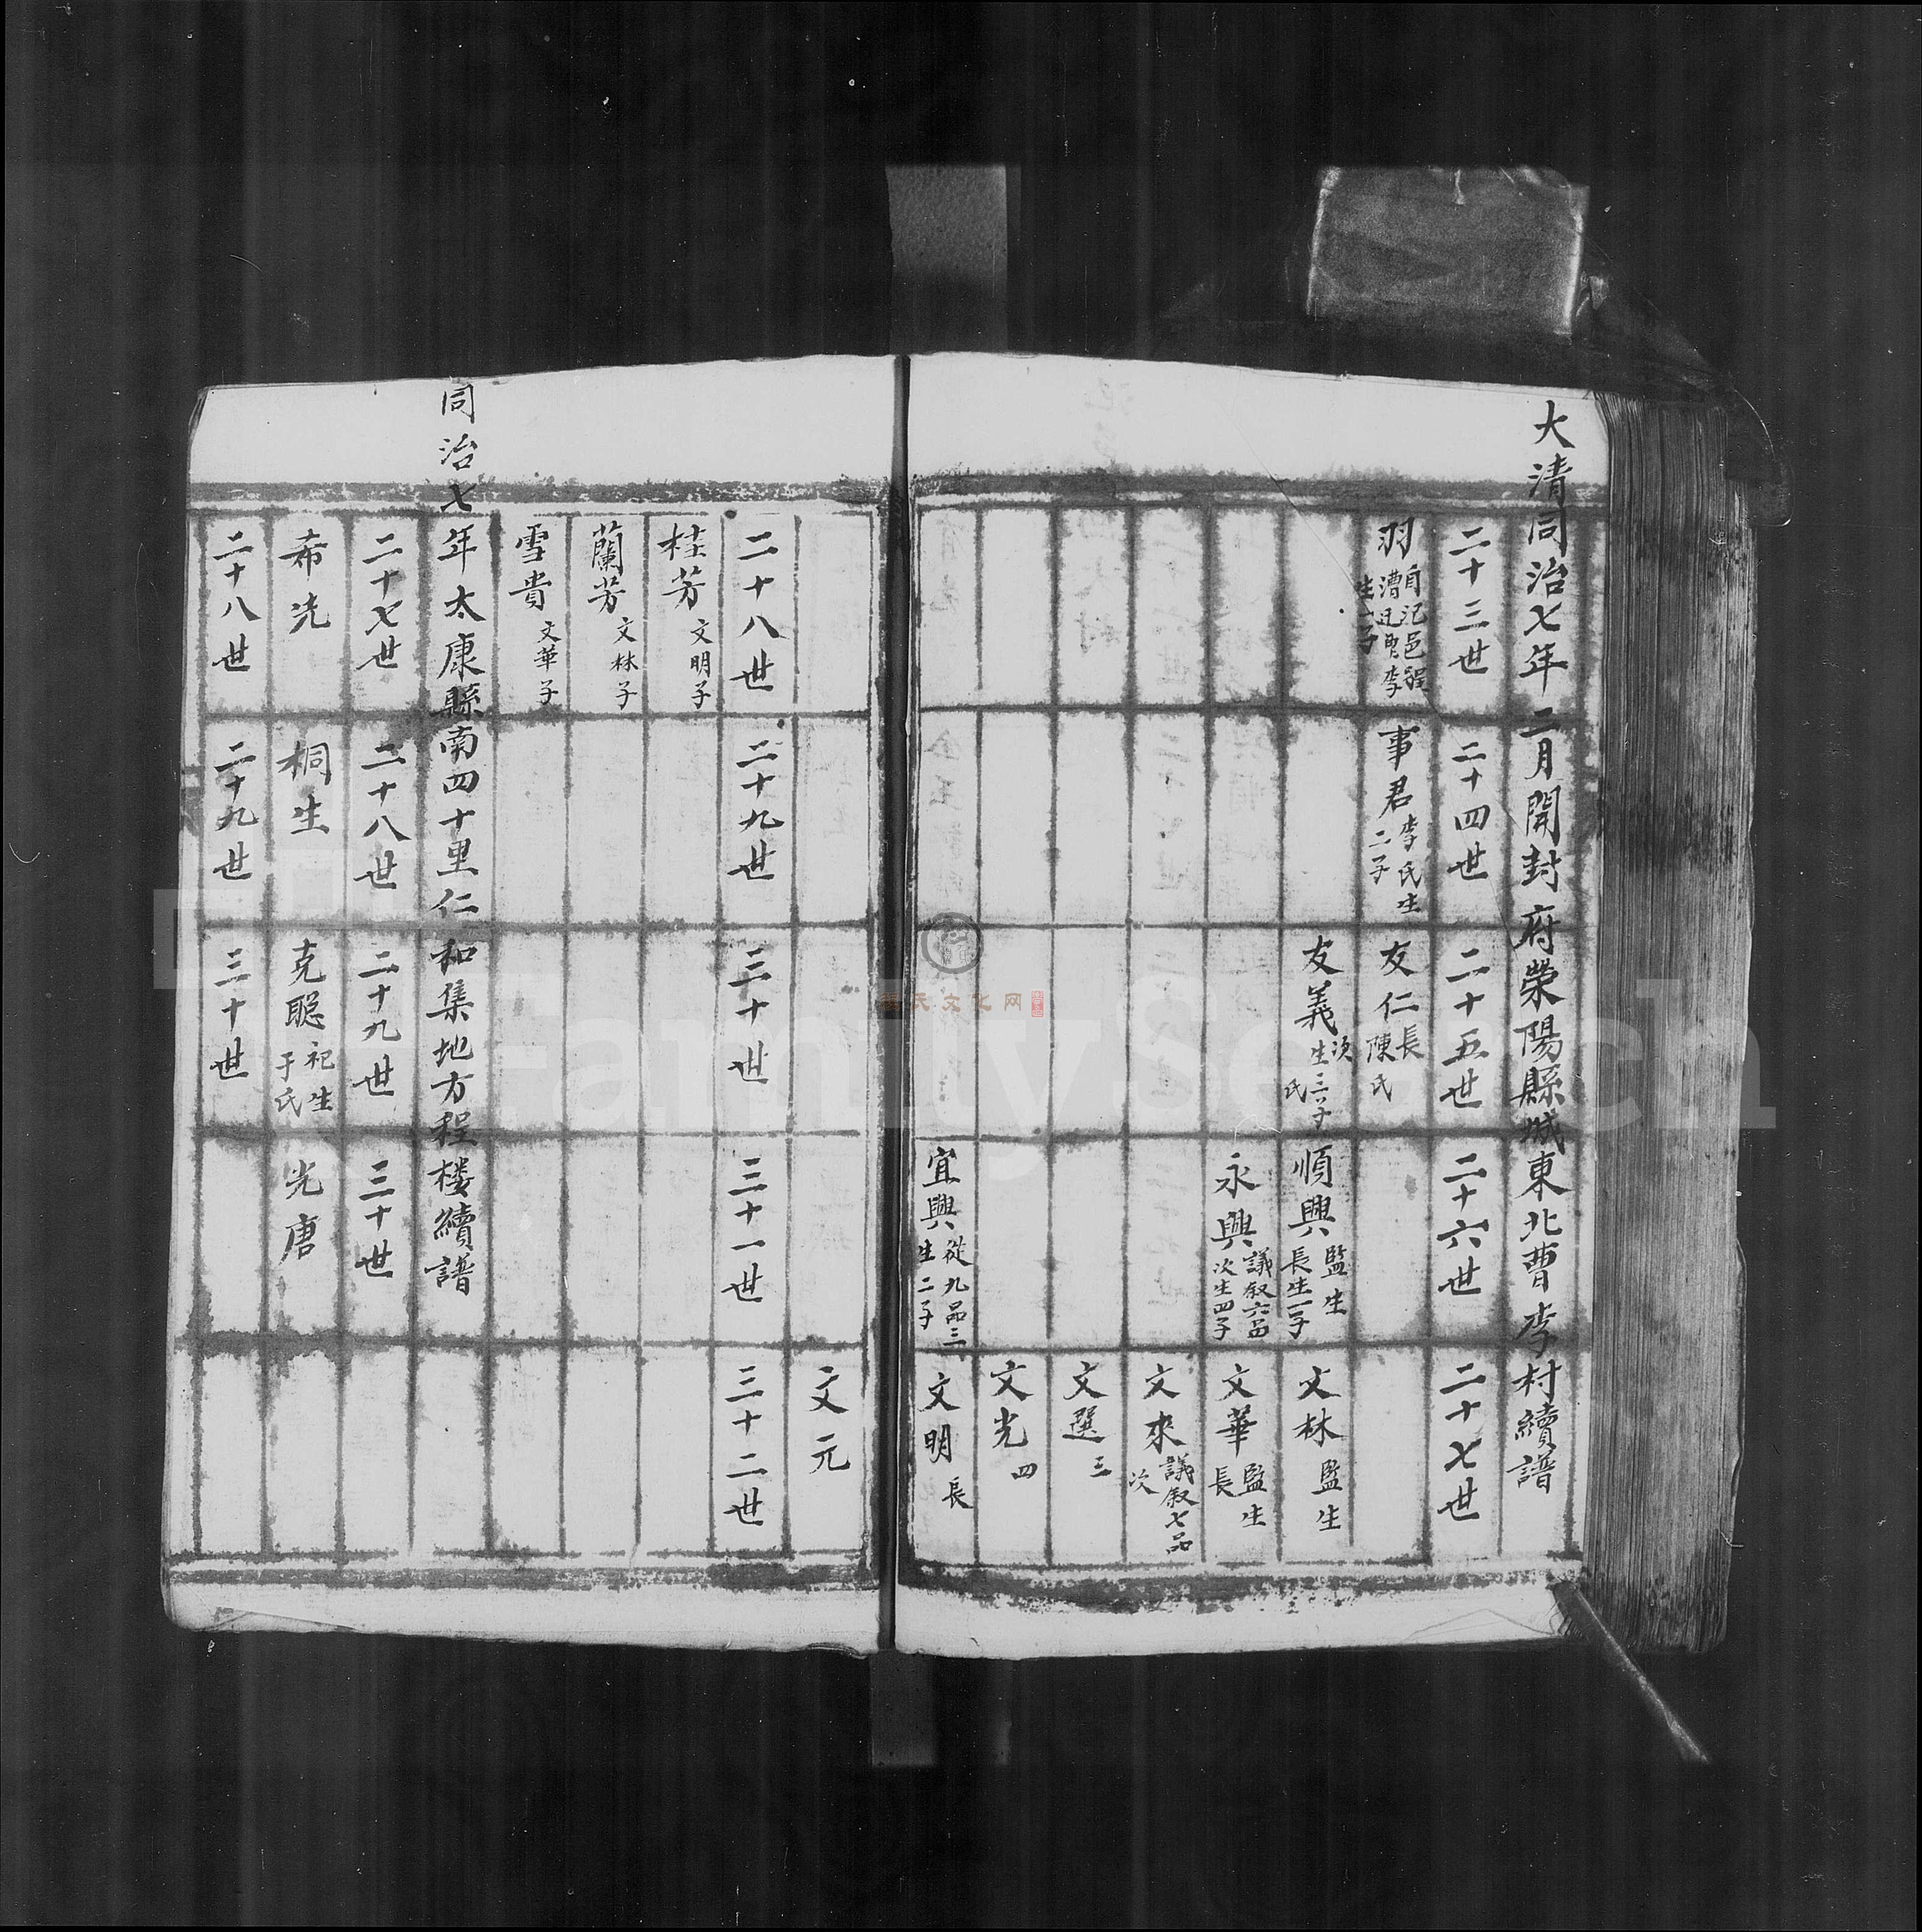 大清同治七年二月開封府滎陽縣城東北曹李村續譜
二十三世 二十四世 二十五世 二十六世 二十七世
羽 自汜邑程 李 生一子 事君 李氏生二子 友仁 長 陳氏
友義 次 生三子 氏 順興 監生 長生一子 文林 監生
永興 議叙六品 次生四子 文華 監生 長
文來 議叙七品 次
文選 三
文光 四
宜興 從九品三 生二子 文明 長
文元
二十八世 二十九世 三十世 三十一世 三十二世
桂芳 文明子
蘭芳 文林子
雪貴 文華子
同治七年太康縣南四十里仁和集地方程楼續譜
二十七世 二十八世 二十九世 三十世
希冼 桐生 克聡 祀生 于氏 光唐
二十八世 二十九世 三十世
氏文化网
FamilySearch